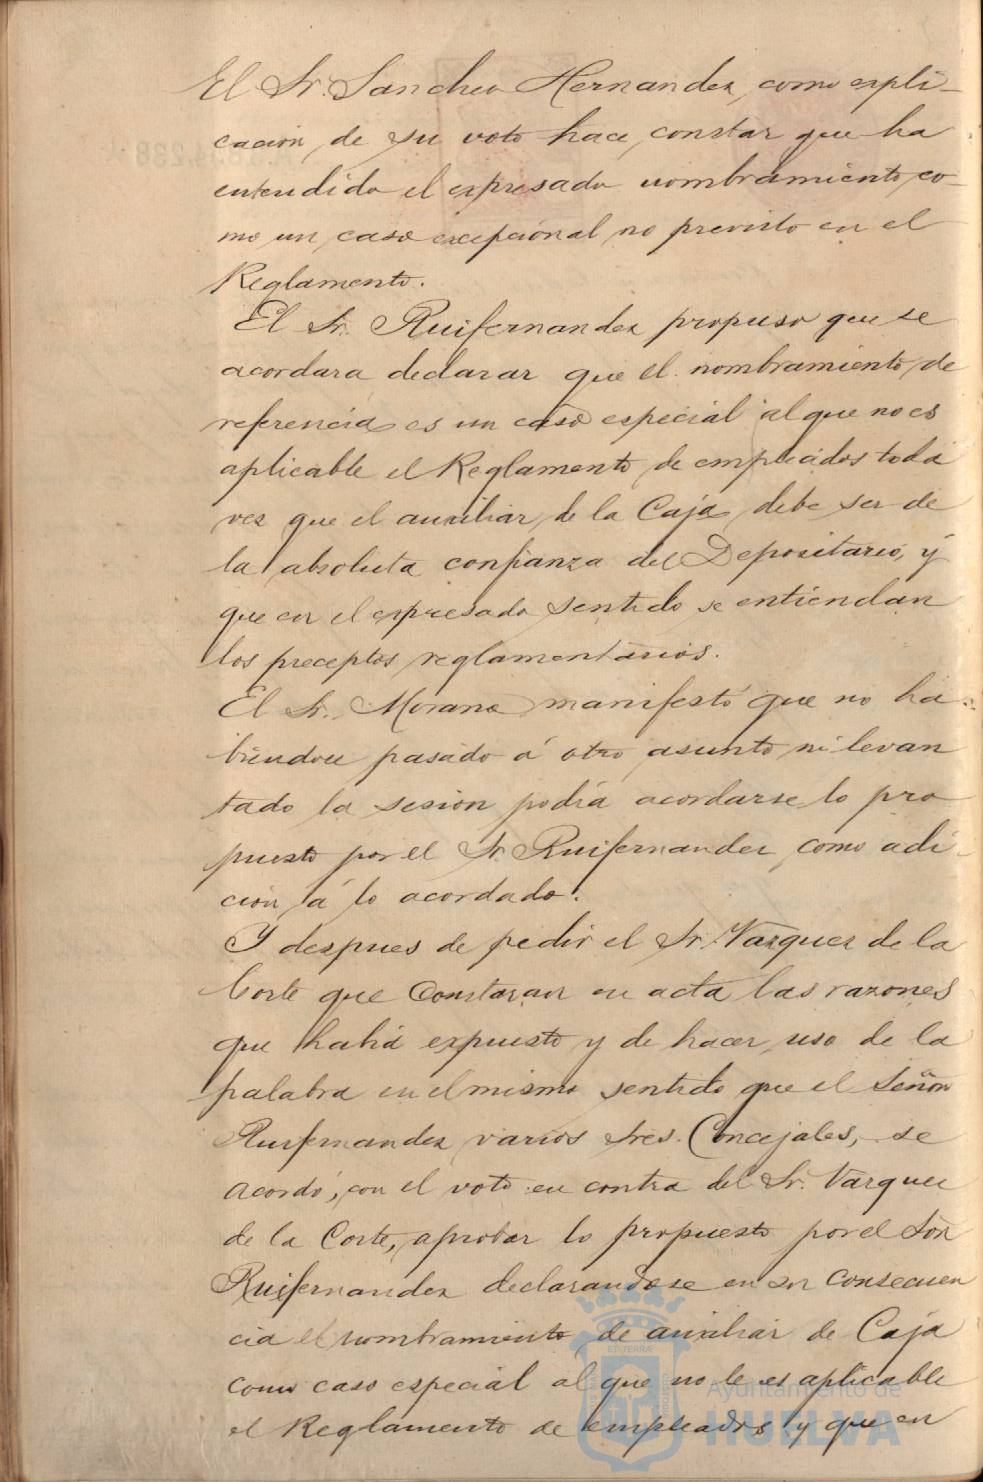 El Sr. Sanchez Hernandez, como expli-
cación de su voto hace constar que ha
entendido el expresado nombramiento co-
mo un caso excepcional no previsto en el
Reglamento.
El Sr. Ruifernandez propuso que se
acordara declarar que el nombramiento de
referencia es un caso especial al que no es
aplicable el Reglamento de empleados toda
vez que el auxiliar de la Caja debe ser de
la absoluta confianza del Depositario, y
que en el expresado sentido se entiendan
los preceptos reglamentarios.
El Sr. Morano manifestó que no ha-
biendose pasado á otro asunto ni levan
tado la sesion podia acordarse lo pro
puesto por el Sr. Ruifernandez como adi-
ción á lo acordado.
Y despues de pedir el Sr. Vazquez de la
Corte que constaran en acta las razones
que habia expuesto y de hacer uso de la
palabra en el mismo sentido que el Señor
Ruifernandez varios Sres. Concejales, se
acordó, con el voto en contra del Sr. Vazquez
de la Corte, aprobar lo propuesto por el Sor
Ruifernandez declarandose en su consecuen
cia el nombramiento de auxiliar de Caja
como caso especial al que no le es aplicable
el Reglamento de empleados y que en
Ayuntamiento de
HUELVA